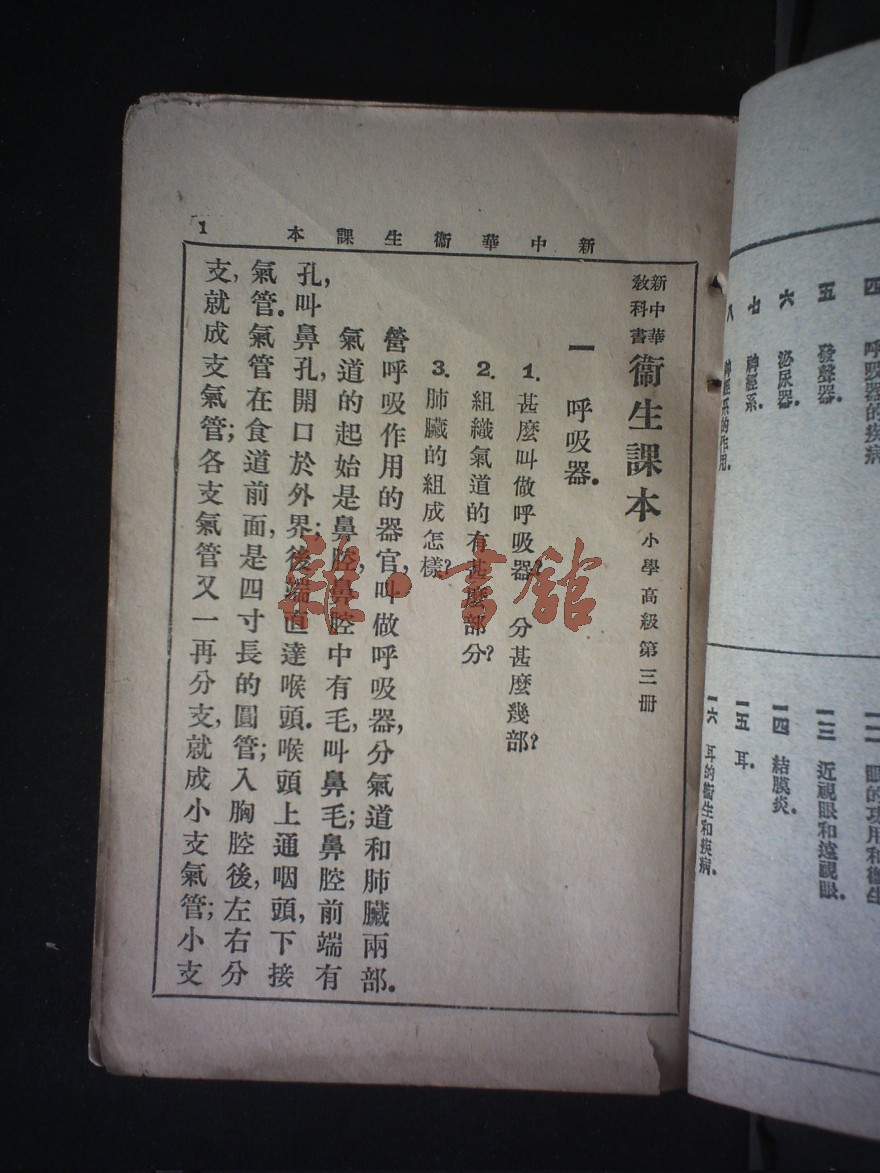 四 呼吸器的疾病
五 發聲器.
六 泌尿器.
七 神經系.
八 神經系的作用.
一三 近視眼和遠視眼.
一四 結膜炎.
一五 耳.
一六 耳的衞生和疾病.
新中華衞生課本
1
新中華
教科書
衞生課本 小學高級第三册
一 呼吸器.
1. 甚麽叫做呼吸器? 分甚麽幾部?
2. 組織氣道的有甚麽部分?
3. 肺臟的組成怎樣?
營呼吸作用的器官,叫做呼吸器,分氣道和肺臟兩部.
氣道的起始是鼻腔,鼻腔中有毛,叫鼻毛;鼻腔前端有
孔,叫鼻孔,開口於外界;後端直達喉頭.喉頭上通咽頭,下接
氣管.氣管在食道前面,是四寸長的圓管;入胸腔後,左右分
支,就成支氣管;各支氣管又一再分支,就成小支氣管;小支
雜·書館